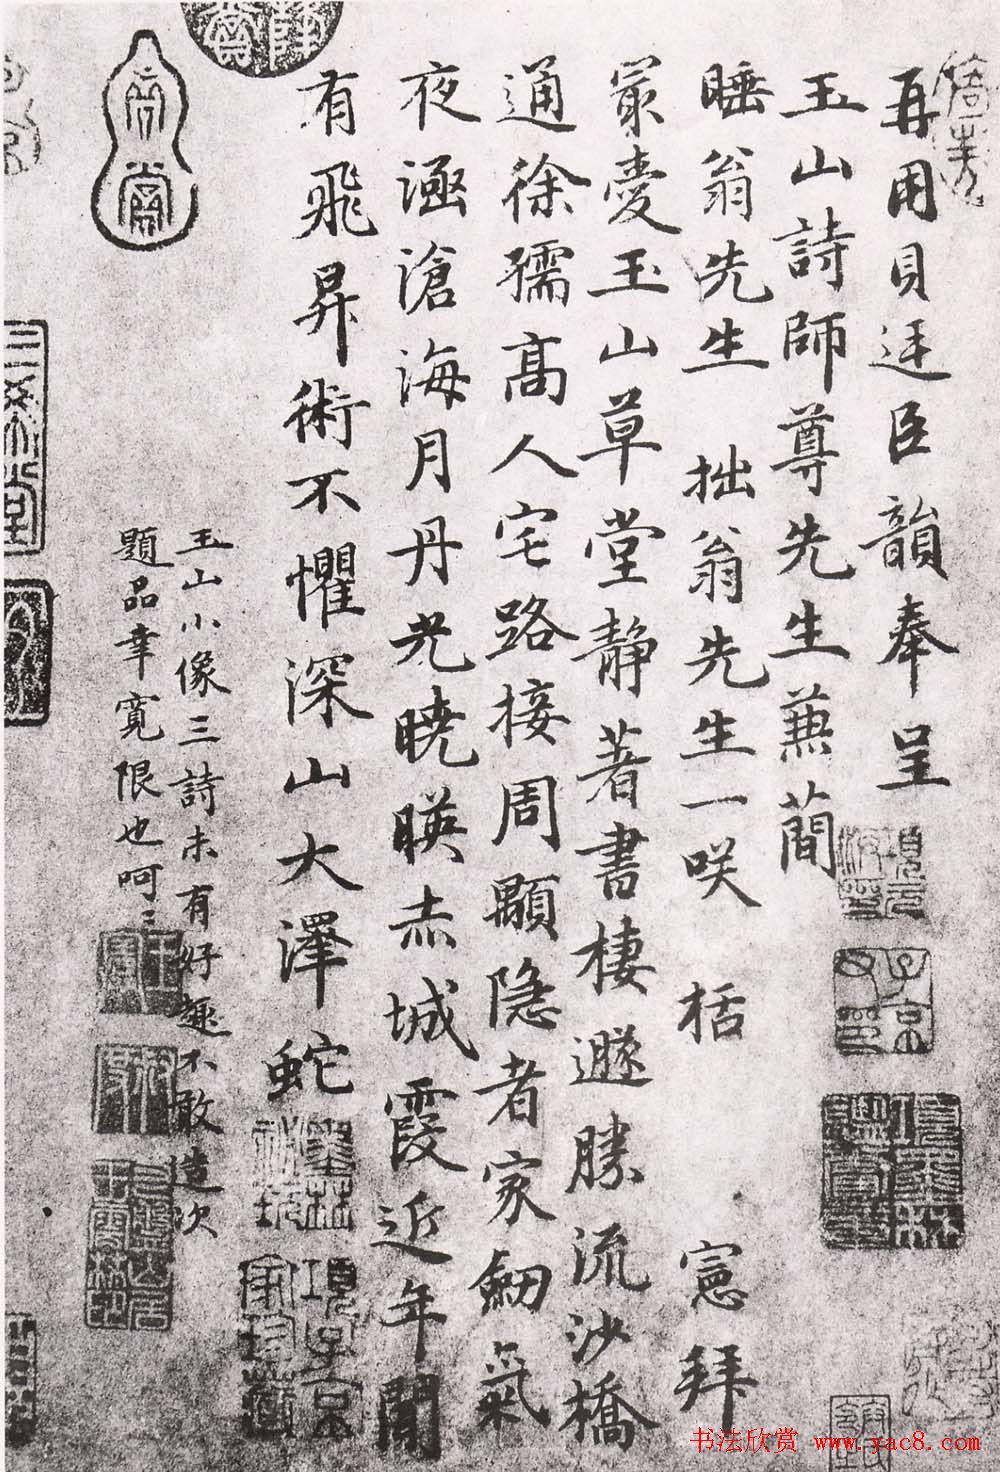 再用貝廷臣韻奉呈
玉山詩師尊先生兼蕳
睡翁先生 拙翁先生一咲 栝 憲拜
㝡愛玉山草堂静著書棲遯勝流沙橋
通徐孺髙人宅路接周顒隐者家劒氣
夜涵滄海月丹光曉暎赤城霞近年聞
有飛昇術不懼深山大澤蛇
玉山小像三詩未有好趣不敢造次
題品幸寛限也呵〻
书法欣赏 www.yac8.com